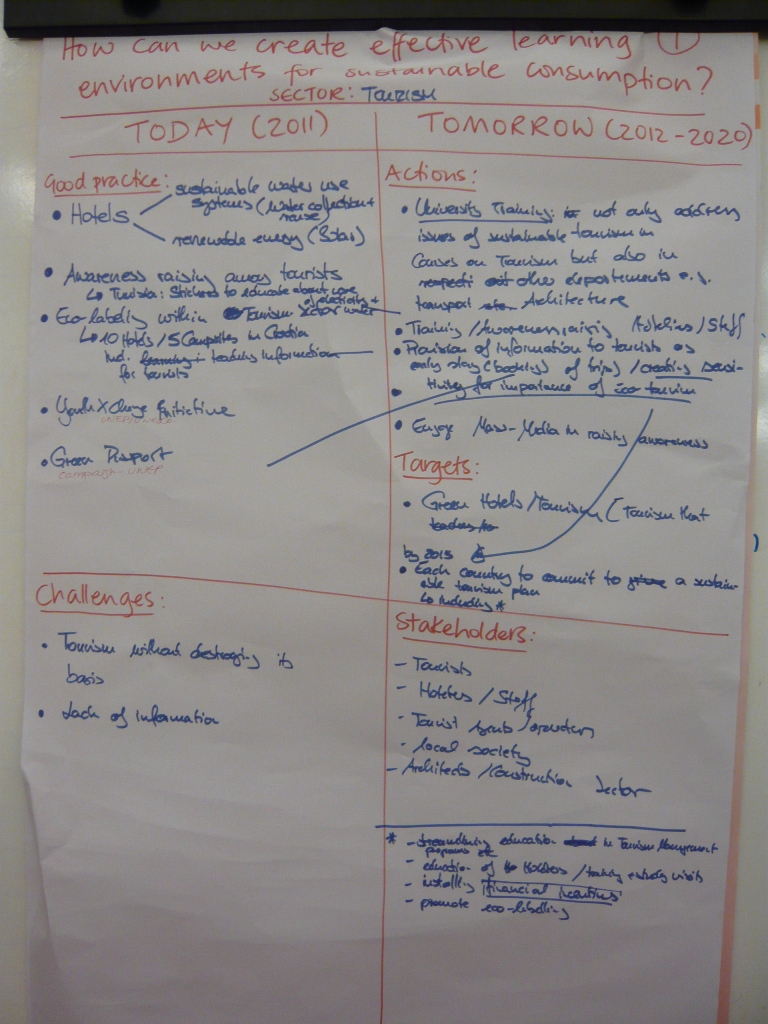 How can we create effective learning ①
environments for sustainable consumption?
SECTOR: TOURISM
TODAY (2011)
Good practice:
• Hotels
sustainable water use
systems (water collection +
reuse)
renewable energy (Solar)
• Awareness raising among tourists
↳ Tunisia: Stickers to educate about use
of electricity +
water
• Eco-labeling within Tourism Sector
↳ 10 Hotels / 5 Campsites in Croatia
Incl. learning + teaching information
for tourists
• YouthXChange Initiative
UNEP/UNESCO
• Green Passport
campaign - UNEP
Challenges:
• Tourism without destroying its
basis
• Lack of information
TOMORROW (2012-2020)
Actions:
• University Training: not only address
issues of sustainable tourism in
Courses on Tourism but also in
other departements e.g.
transport Architecture
• Training / Awareness raising Hoteliers / Staff
• Provision of information to tourists as
early stay (booking) of trips) / creating sensi-
tivity for importance of eco tourism
• Engage Mass-Media in raising awareness
Targets:
• Green Hotels / Tourism (Tourism that
leads to
by 2015
• Each country to commit to a sustain-
able tourism plan
↳ including *
Stakeholders:
- Tourists
- Hoteliers / Staff
- Tourist agents / operators
- local society
- Architects / Construction Sector
* - education in Tourism Management
programs
- education of Hoteliers / training
visits
- installing financial incentives
- promote eco-labelling